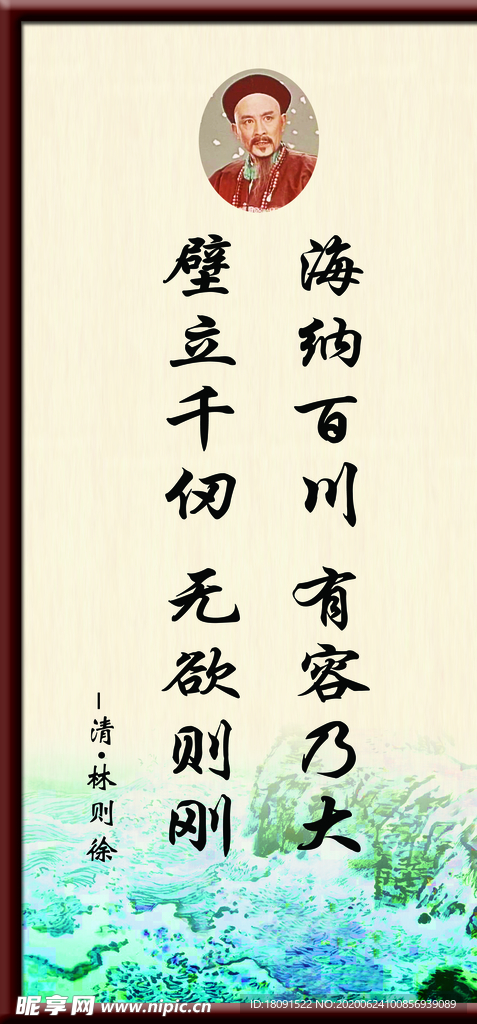 海纳百川 有容乃大
壁立千仞 无欲则刚
-清·林则徐
昵享网 www.nipic.cn
ID:18091522 NO:20200624100856939089